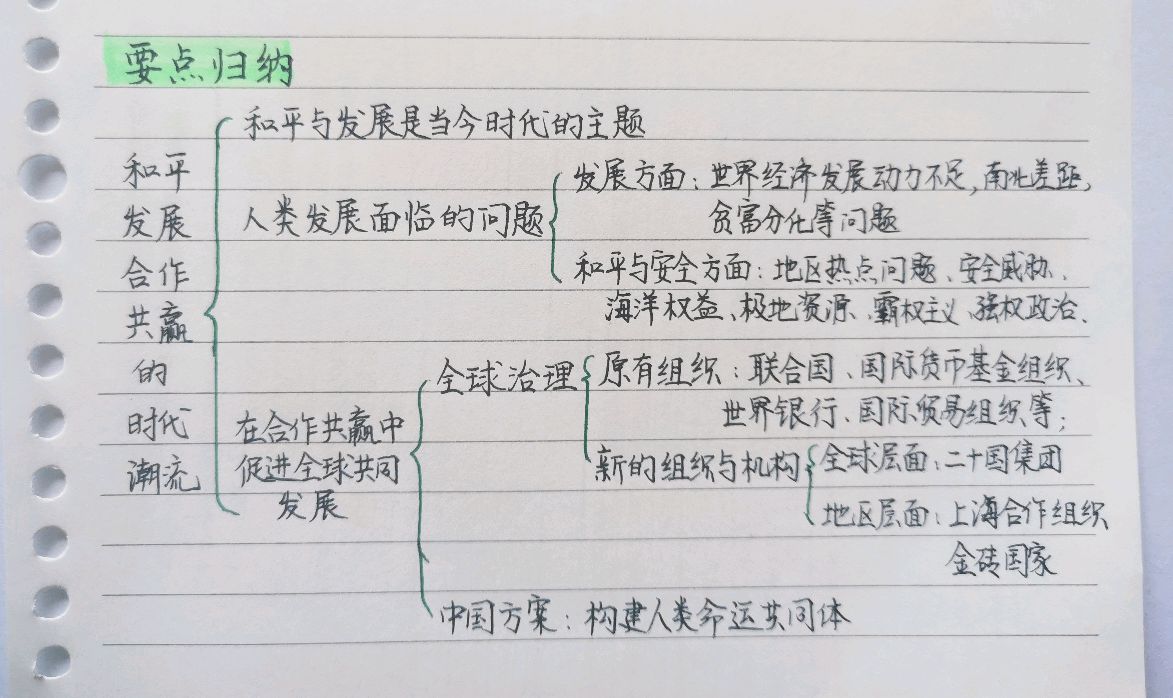 要点归纳
和平
发展
合作
共赢
的
时代
潮流
和平与发展是当今时代的主题
人类发展面临的问题
发展方面：世界经济发展动力不足，南北差距，
贫富分化等问题
和平与安全方面：地区热点问题、安全威胁、
海洋权益、极地资源、霸权主义、强权政治、
在合作共赢中
促进全球共同
发展
全球治理
原有组织：联合国、国际货币基金组织、
世界银行、国际贸易组织等；
新的组织与机构
全球层面：二十国集团
地区层面：上海合作组织
金砖国家
中国方案：构建人类命运共同体